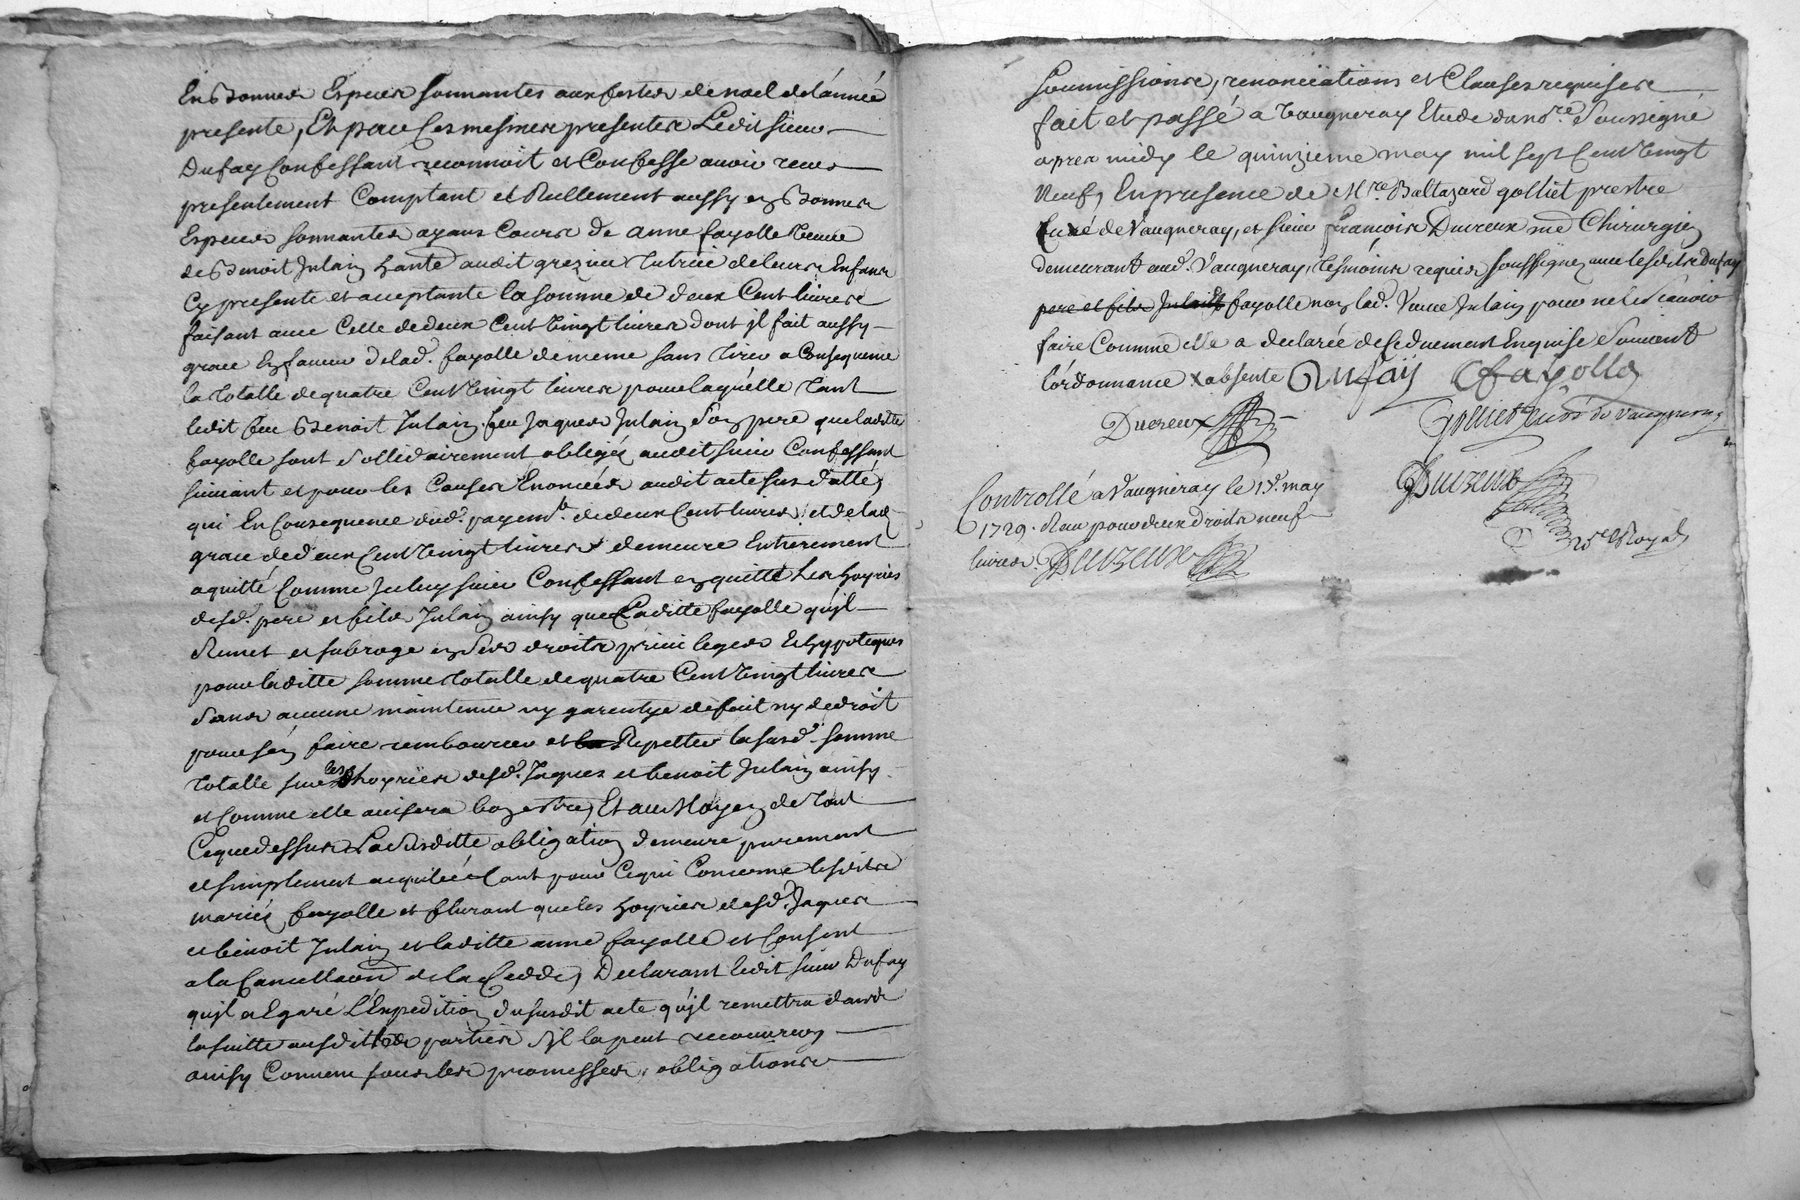 En Bonnes Especes sonnantes aux festes de noel de l'année
presente, Et par ces mesmes presentes Ledit sieur
Dufay Confessant reconnoit et Confesse avoir receu
presentement Comptant et Réellement aussy en Bonnes
Especes sonnantes ayans Cours de anne fayolle veuve
de Benoit Julain hante audit grezieu tutrice de leurs Enfans
Cy presente et acceptante la somme de deux Cent livres
faisant avec Celle de deux Cent vingt livres dont jl fait aussy
grace En faveur de lad. fayolle de meme sans tirer a Consequence
la totalle de quatre Cent vingt livres pour laquelle tant
ledit feu Benoit Julain feu Jaques Julain son pere que laditte
fayolle sont sollidairement obligés audit sieur Confessant
suivant et pour les Causes Enoncées audit acte sus datté,
qui En Consequence dud. payemt. de deux Cent livres et de lad.
grace de deux Cent vingt livres demeure Entierement
aquitté Comme Jceluy sieur Confessant en quitte les hoyries
desd. pere et fils Julain ainsy que Laditte fayolle qu'jl
Remet et subroge en ses droits privileges Et hypoteques
pour laditte somme totalle de quatre Cent vingt livres
sans aucune maintenue ny garentye de fait ny de droit
pour s'en faire rembourcer et Repetter la susd. somme
totalle sur les hoyries desd. Jaques et benoit Julain ainsy
et Comme elle avisera bon estre, Et au Moyen de tout
Ce que dessus La susditte obligation demeure purement
et simplement aquitée tant pour Ce qui Concerne lesdits
mariés fayolle et flurant que les hoyries desd. Jaques
et benoit Julain et laditte anne fayolle et Consent
a la Cancellaon de la Cedde, Declarant ledit sieur Dufay
qu'jl a Egaré L'Expedition du susdit acte qu'jl remettra dans
la suitte ausdittes parties s'jl la peut recouvrer
ainsy Convenu sous les promesses, obligations
soumissions, renonciations et Clauses requises
fait et passé a Vaugneray Etude du nore. soussigné
apres midy le quinzieme may mil sept Cent vingt
neuf, En presence de Mre. Baltazard golliet prestre
Curé de Vaugneray, et sieur françois Ducreux me Chirurgien
demeurant aud. Vaugneray, tesmoins requis soussignez avec lesdits Dufay
pere et fils Julain fayolle non lad. veuve Julain pour ne le sçavoir
faire Comme elle a declarée de se duement Enquise suivant
l'ordonnance x absente Dufay Cfayolle
Ducreux Golliet Curé de Vaugneray
Controllé a Vaugneray le 15. may
1729. Reçu pour deux droits neuf
livres.
nre Royal